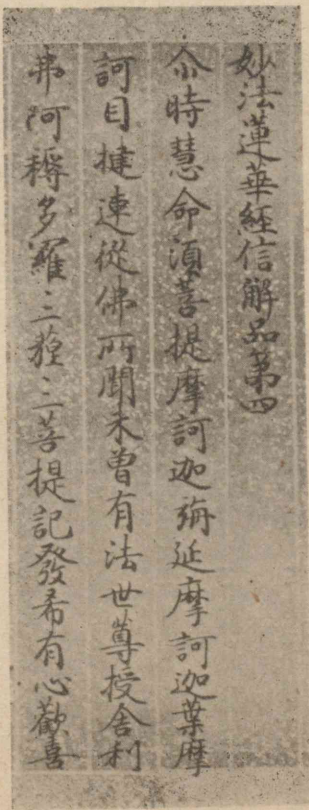 妙法蓮華經信解品第四
尒時慧命湏菩提摩訶迦旃延摩訶迦葉摩
訶目揵連從佛所聞未曾有法世尊授舍利
弗阿耨多羅三藐三菩提記發希有心歡喜